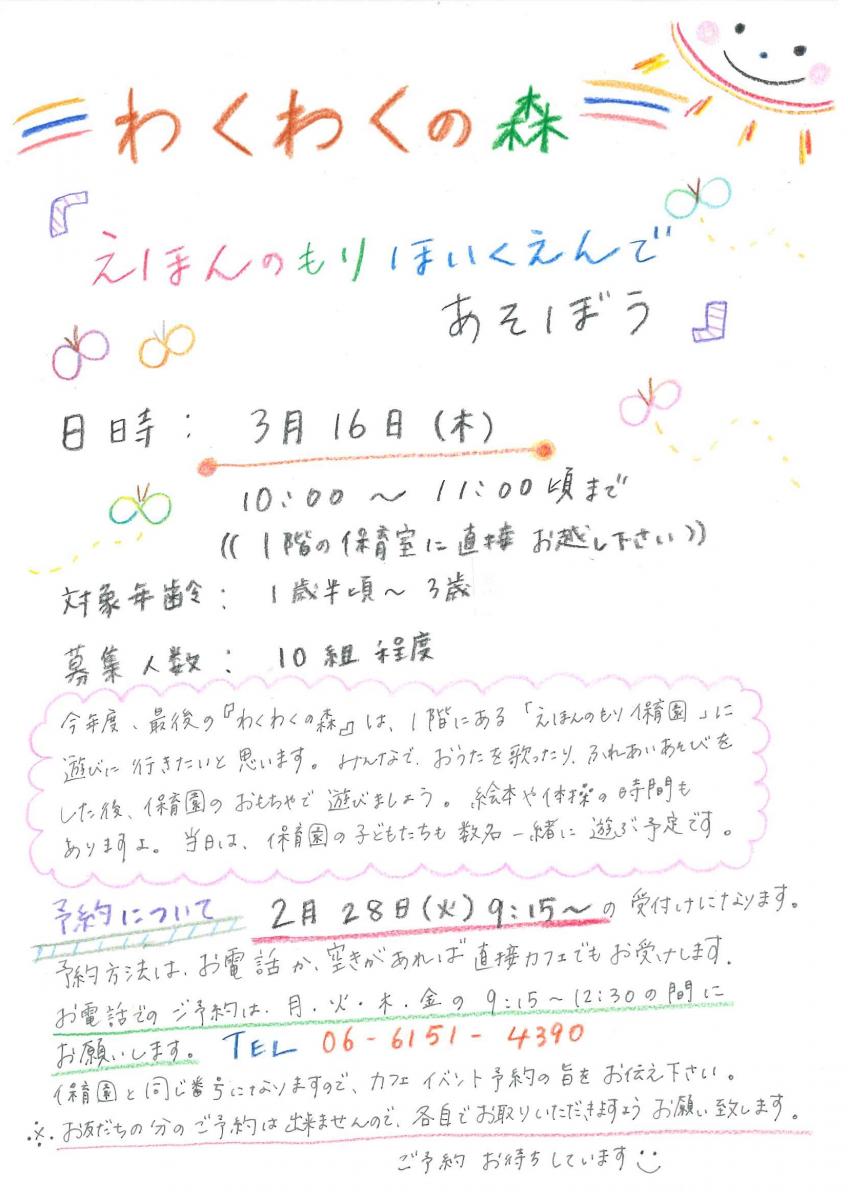 わくわくの森
『えほんのもりほいくえんで
あそぼう』
日時： 3月16日(木)
10:00 〜 11:00頃まで
((1階の保育室に直接お越し下さい))
対象年齢： 1歳半頃〜3歳
募集人数： 10組程度
今年度、最後の『わくわくの森』は、1階にある「えほんのもり保育園」に
遊びに行きたいと思います。みんなで、おうたを歌ったり、ふれあいあそびを
した後、保育園のおもちゃで遊びましょう。絵本や体操の時間も
ありますよ。当日は、保育園の子どもたちも数名一緒に遊ぶ予定です。
予約について 2月28日(火)9:15〜の受付けになります。
予約方法は、お電話か、空きがあれば直接カフェでもお受けします。
お電話でのご予約は、月・火・木・金の9:15〜12:30の間に
お願いします。 TEL 06-6151-4390
保育園と同じ番号になりますので、カフェイベント予約の旨をお伝え下さい。
※お友だちの分のご予約は出来ませんので、各自でお取りいただきますようお願い致します。
ご予約お待ちしています